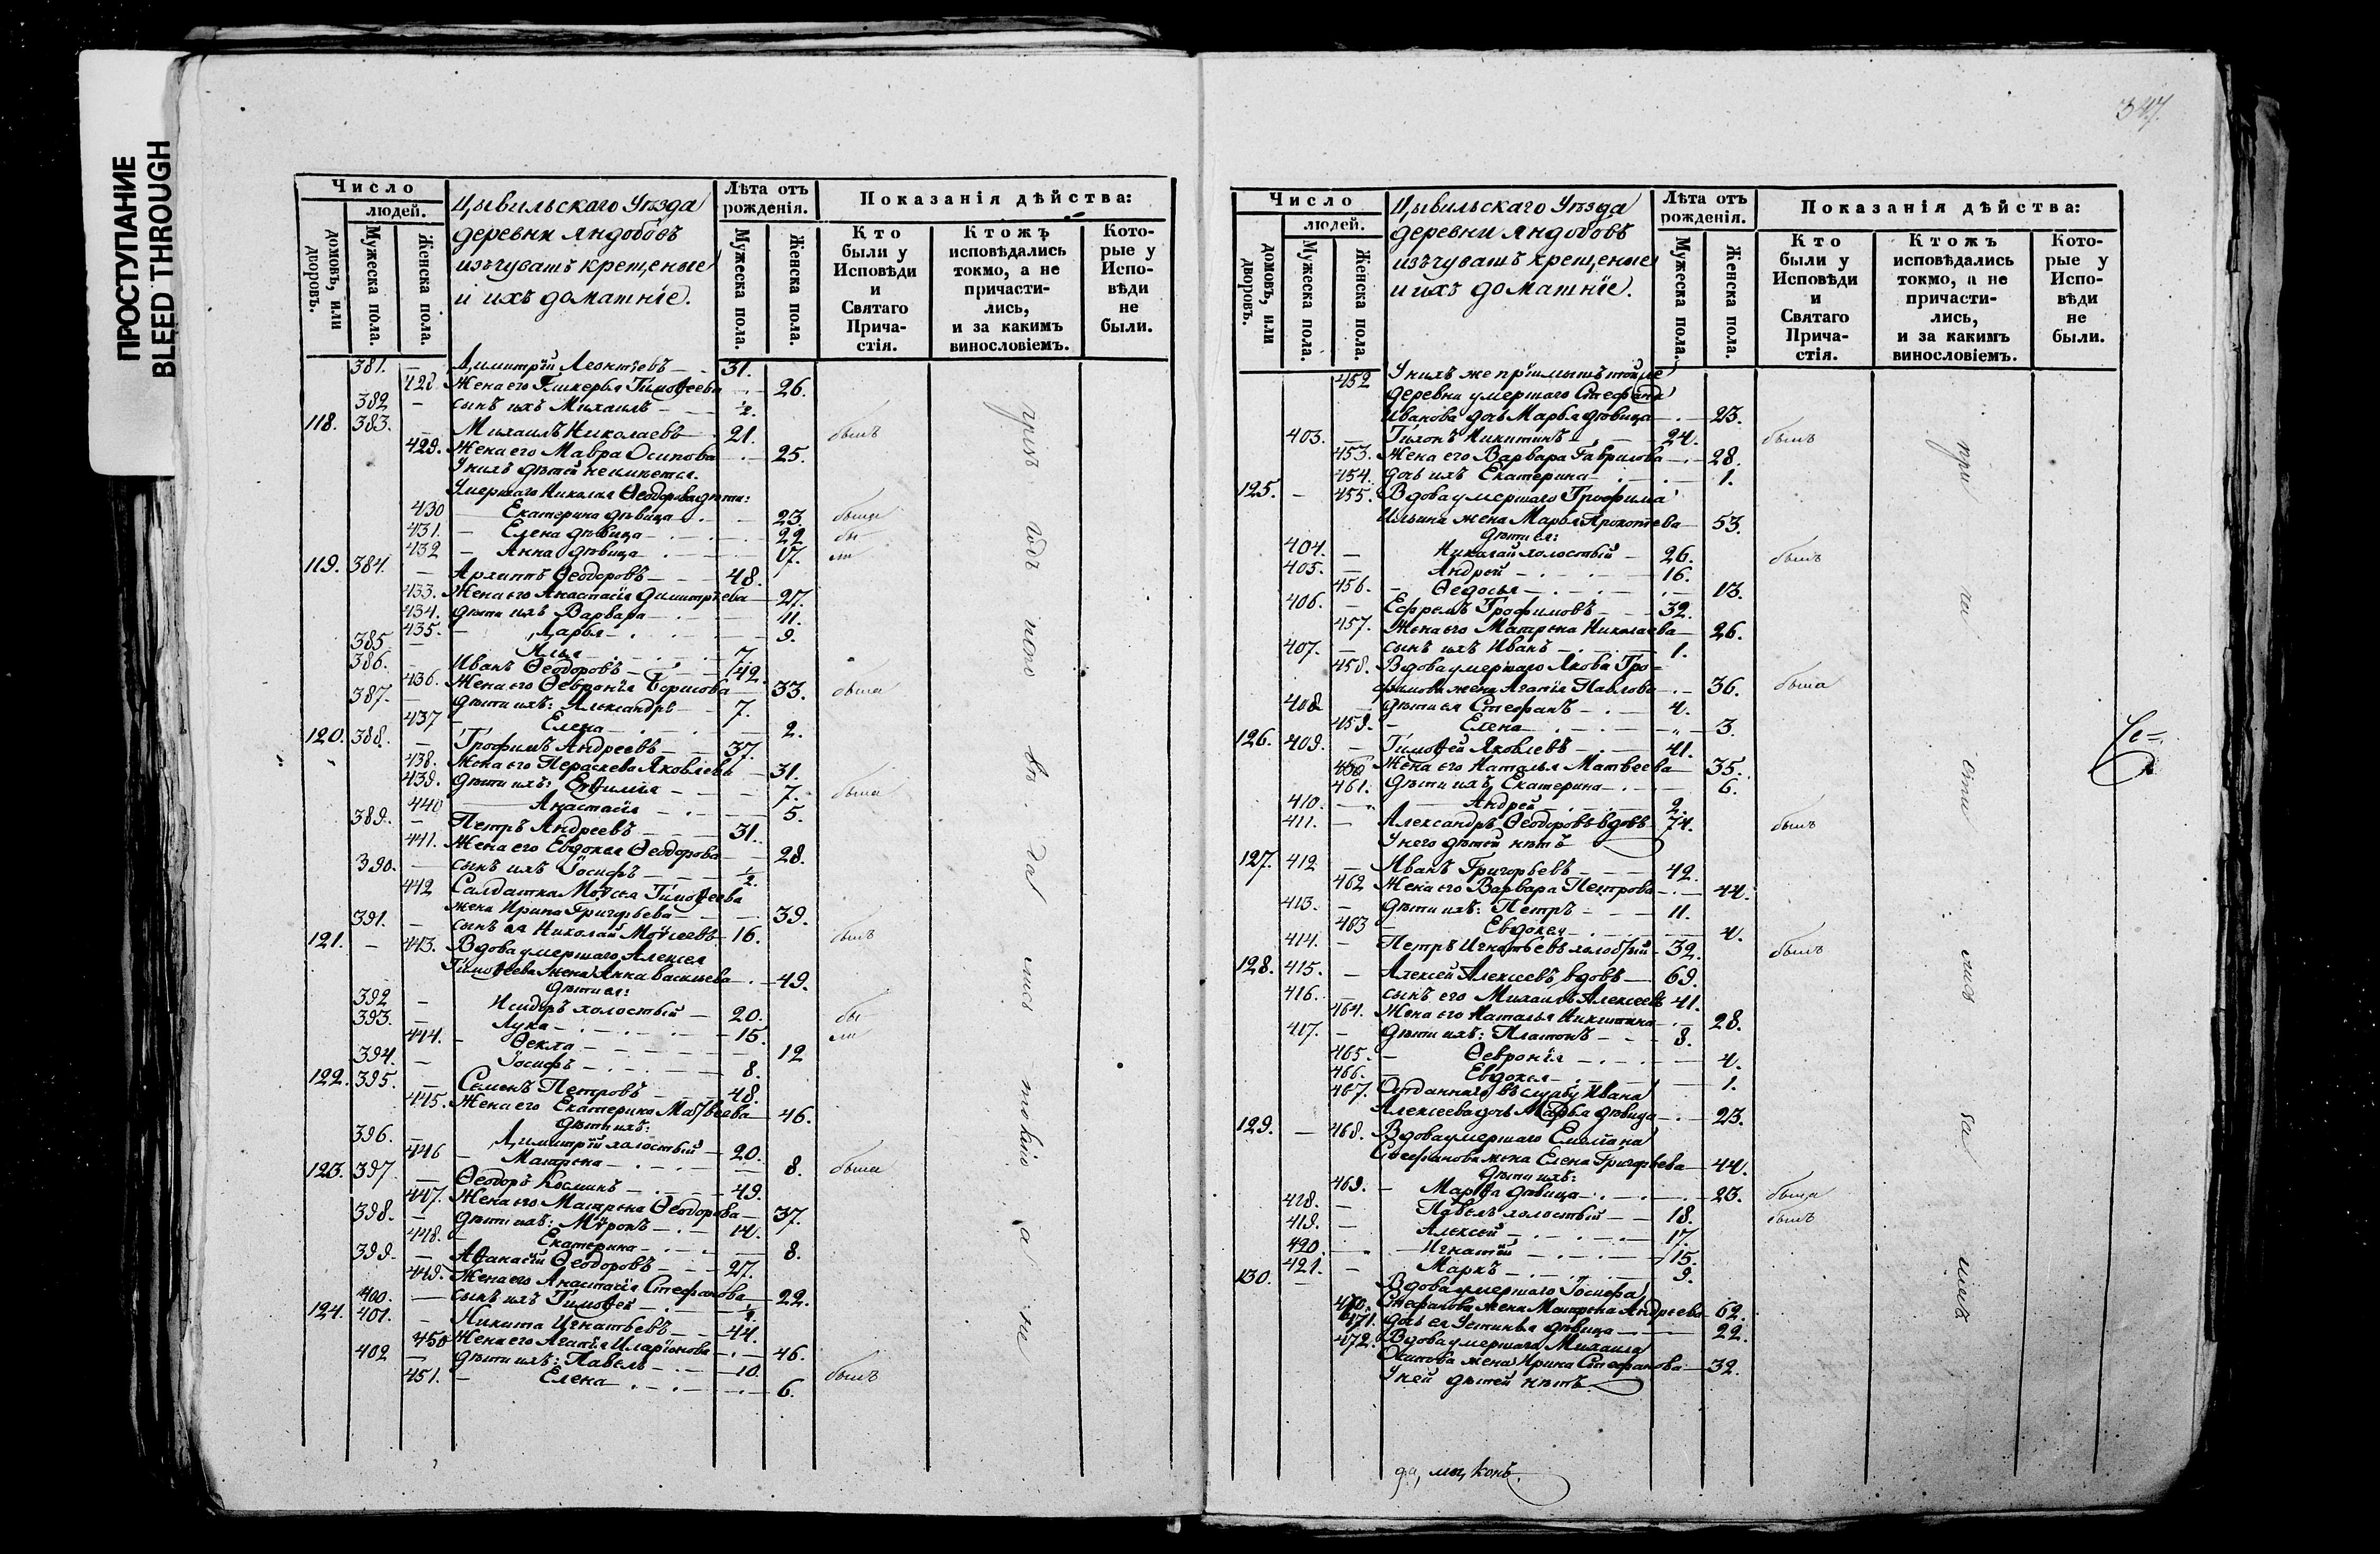 ПРОСТУПАНИЕ
BLEED THROUGH
347.
Число
людей.
домовъ, или дворовъ.
Мужеска пола.
Женска пола.
Цывильскаго Уѣзда
деревни Яндобовъ
изъ чувашъ крещеные
і ихъ домашніе.
Лѣта отъ рожденія.
Мужеска пола.
Женска пола.
Показанія дѣйства:
Кто были у Исповѣди и Святаго Прича-стія.
Ктожъ исповѣдались токмо, а не причасти-лись, и за какимъ винословіемъ.
Кото-рые у Испо-вѣди не были.
381. — Димитрій Леонтьевъ — 31.
428. Жена его Гликерья Тимоѳеева — 26.
382 — сынъ ихъ Михаилъ — ½.
118. 383. — Михаилъ Николаевъ — 21. былъ
429. Жена его Мавра Осипова — 25.
У нихъ дѣтей не имѣется.
Умершаго Николая Ѳеодорова дѣти:
430 Екатерина дѣвица — 23. быша
431. — Елена дѣвица — 22 бы
432 — Анна дѣвица — 17. ли
119. 384. — Архиппъ Ѳеодоровъ — 48.
433. Жена его Анастасія Димитрѣева — 27.
434. дѣти ихъ Варвара — 11.
435. — Дарья — 9.
385 — Илья — 7.
386. — Иванъ Ѳеодоровъ — 42.
436. Жена его Ѳевронія Борисова — 33. быша
387. — дѣти ихъ: Александръ — 7.
437 — Елена — 2.
120. 388. — Трофимъ Андреевъ — 37.
438. Жена его Пераскева Яковлева — 31.
439. дѣти ихъ: Евѳимия — 7. быша
440 — Анастасія — 5.
389. — Петръ Андреевъ — 31.
441. Жена его Евдокея Ѳеодорова — 28.
390. — сынъ ихъ Іосифъ — ½.
442 Салдатка Мѡѵсея Тимоѳеева
жена Ирина Григорьева — 39.
391. — сынъ ея Николай Моѵсеевъ — 16. былъ
121. — 443. Вдова умершаго Алексея
Тимоѳеева жена Анна Васильева — 49.
дѣти ея:
392 — Исидоръ холостый — 20. бы
393. — Лука — 15. ли
444. — Ѳекла — 12
394. — Іосифъ — 8.
122. 395. — Семенъ Петровъ — 48.
445. Жена его Екатерина Матвеева — 46.
дѣти ихъ:
396. — Димитрій холостый — 20.
446 — Матрена — 8. быша
123. 397 — Ѳеодоръ Косминъ — 49.
447. Жена его Матрена Ѳеодорова — 37.
398. — дѣти ихъ: Мѵронъ — 14.
448. — Екатерина — 8.
399. — Аѳанасій Ѳеодоровъ — 27.
449. Жена его Анастасія Стефанова — 22.
400. — сынъ ихъ Тимоѳей — ½.
124. 401. — Никита Игнатьевъ — 44.
450 Жена его Агапія Иларіонова — 46.
402 — дѣти ихъ: Павелъ — 10.
451. — Елена — 6. былъ
Число
людей.
домовъ, или дворовъ.
Мужеска пола.
Женска пола.
Цывильскаго Уѣзда
деревни Яндобовъ
изъ чувашъ крещеные
и ихъ домашніе.
Лѣта отъ рожденія.
Мужеска пола.
Женска пола.
Показанія дѣйства:
Кто были у Исповѣди и Святаго Прича-стія.
Ктожъ исповѣдались токмо, а не причасти-лись, и за какимъ винословіемъ.
Кото-рые у Испо-вѣди не были.
452 У нихъ же
деревни умершаго Стефана
Иванова дочь Марья дѣвица — 23.
403. — Тихонъ Никитинъ — 24. былъ
453. Жена его Варвара Гаврилова — 28.
454. дочь ихъ Екатерина — 1.
125. — 455. Вдова умершаго Трофима
Ильина жена Марья Прокопѣева — 53.
дѣти ея:
404. — Николай холостый — 26. былъ
405. — Андрей — 16.
456. — Ѳедосья — 13.
406. — Ефремъ Трофимовъ — 32.
457. Жена его Матрена Николаева — 26.
407. — сынъ ихъ Иванъ — 1.
458. Вдова умершаго Якова Тро-
фимова жена Агапія Павлова — 36. быша
408 — дѣти ея Стефанъ — 4.
459. — Елена — 3.
126. 409. — Тимоѳей Яковлевъ — 41.
460 Жена его Наталья Матвеева — 35.
461. Дѣти ихъ Екатерина — 6.
410. — Андрей — 2.
411. — Александръ Ѳеодоровъ вдовъ — 74. былъ
У него дѣтей нѣтъ
127. 412 — Иванъ Григорьевъ — 42.
462 Жена его Варвара Петрова — 44.
413. — дѣти ихъ: Петръ — 11.
463 — Евдокея — 4.
414. — Петръ Игнатьевъ холостый — 32. былъ
128. 415. — Алексей Алексеевъ вдовъ — 69.
416. — сынъ его Михаилъ Алексеевъ 41.
464. Жена его Наталья Никитина — 28.
417. — дѣти ихъ: Платонъ — 8.
465. — Ѳевронія — 4.
466. — Евдокея — 1.
467. Отданнаго въ службу Ивана
Алексеева дочь Марья дѣвица — 23.
129. — 468. Вдова умершаго Емеліана
Стефанова жена Елена Григорьева — 44.
дѣти ихъ:
469. — Марѳа дѣвица — 23. быша
418. — Павелъ холостый — 18. былъ
419. — Алексей — 17.
420. — Игнатій — 15.
421. — Маркъ — 9.
130. — Вдова умершаго Іосифа
470. Стефанова жена Матрена Андреева 62.
471. дочь ея Устинья дѣвица — 22.
472. Вдова умершаго Михаила
Осипова жена Ирина Стефанова — 32.
У ней дѣтей нѣтъ.